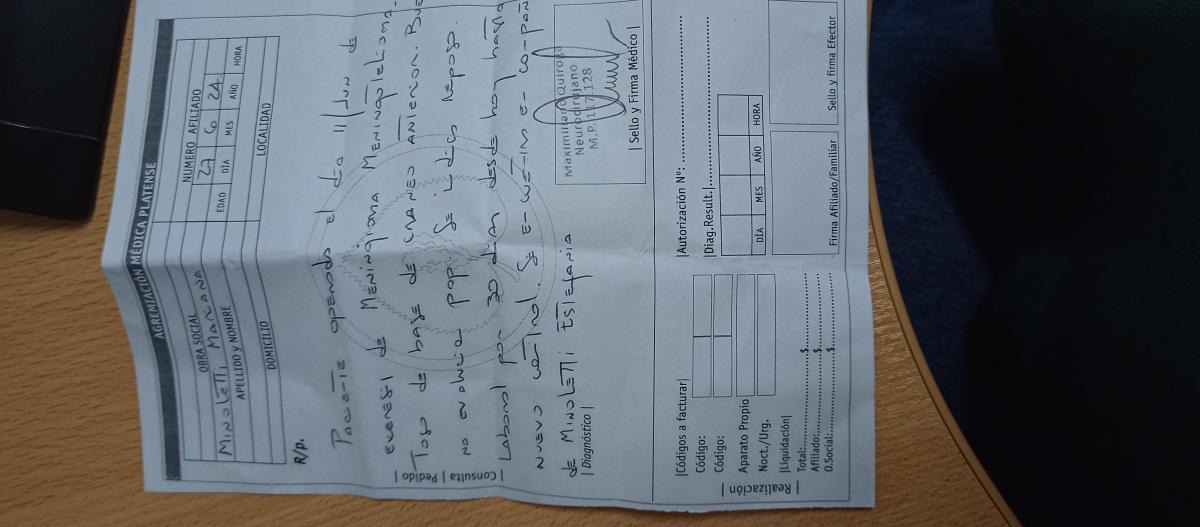 AGREMIACIÓN MÉDICA PLATENSE
OBRA SOCIAL
NUMERO AFILIADO
Minoletti Mariana
27 6 24
APELLIDO Y NOMBRE
EDAD DÍA MES AÑO HORA
DOMICILIO
LOCALIDAD
R/p.
Paciente operada el dia 11/Jun de
exeresis de Meningioma Meningotelioma-
Toso de base de craneo anterior. Bue
na evolucion pop. Se indica Reposo
Laboral por 30 dias desde hoy hasta
nuevo control. Se
de Minoletti Estefania
| Consulta | Pedido |
Maximiliano Quiroga
Neurocirujano
M.P. 117.128
| Sello y Firma Médico |
| Diagnóstico |
|Códigos a facturar|
|Autorización Nº:
Código:
|Diag.Result.|
Código:
Aparato Propio
Noct./Urg.
DÍA MES AÑO HORA
|Liquidación|
Total: $
Afiliado: $
O.Social: $
Firma Afiliado/Familiar
Sello y Firma Efector
| Realización |